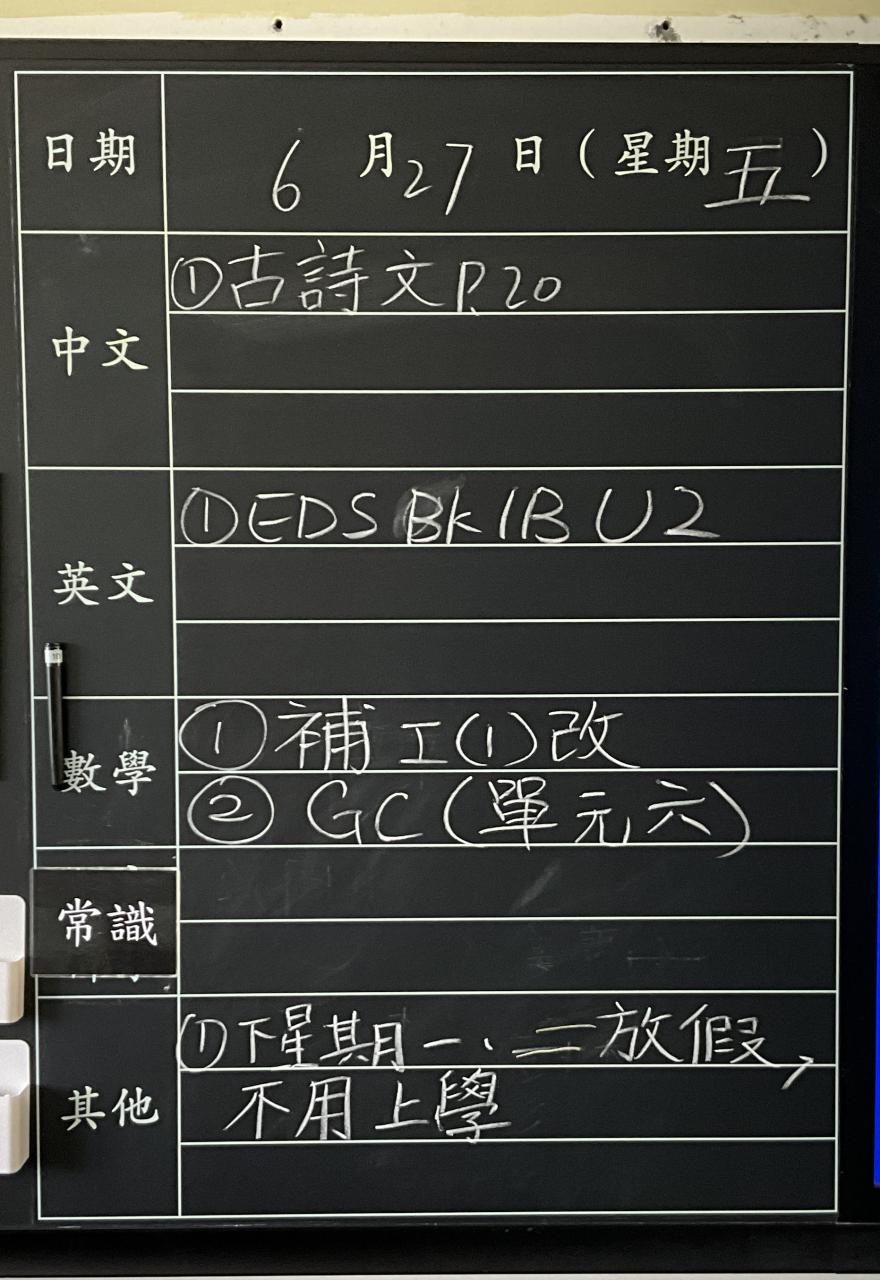 日期 6月27日(星期五)
中文 ①古詩文P.20
英文 ①EDS BK1B U2
數學 ①補工(1)改
②GC(單元六)
常識
其他 ①下星期一、二放假,
不用上學